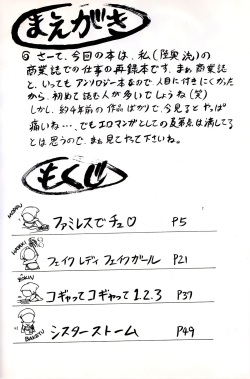 まえがき
◎さーて、今回の本は、私(陸奥 洸)の
商業誌での仕事の再録本です。まぁ商業誌
と、いってもアンソロジー本なので人目に付きにくかった
から、初めて読む人が多いでしょうね(笑)
しかし、約4年前の作品ばかりで、今見るとやっぱ
痛いね…、でもエロマンガとしての及第点は満してる
とは思うので、まぁ見てやって下さいね。
もくじ
ファミレスでチュ♡ P5
フェイクレディフェイクガール P21
コギャってコギャって1.2.3 P37
シスターストーム P49